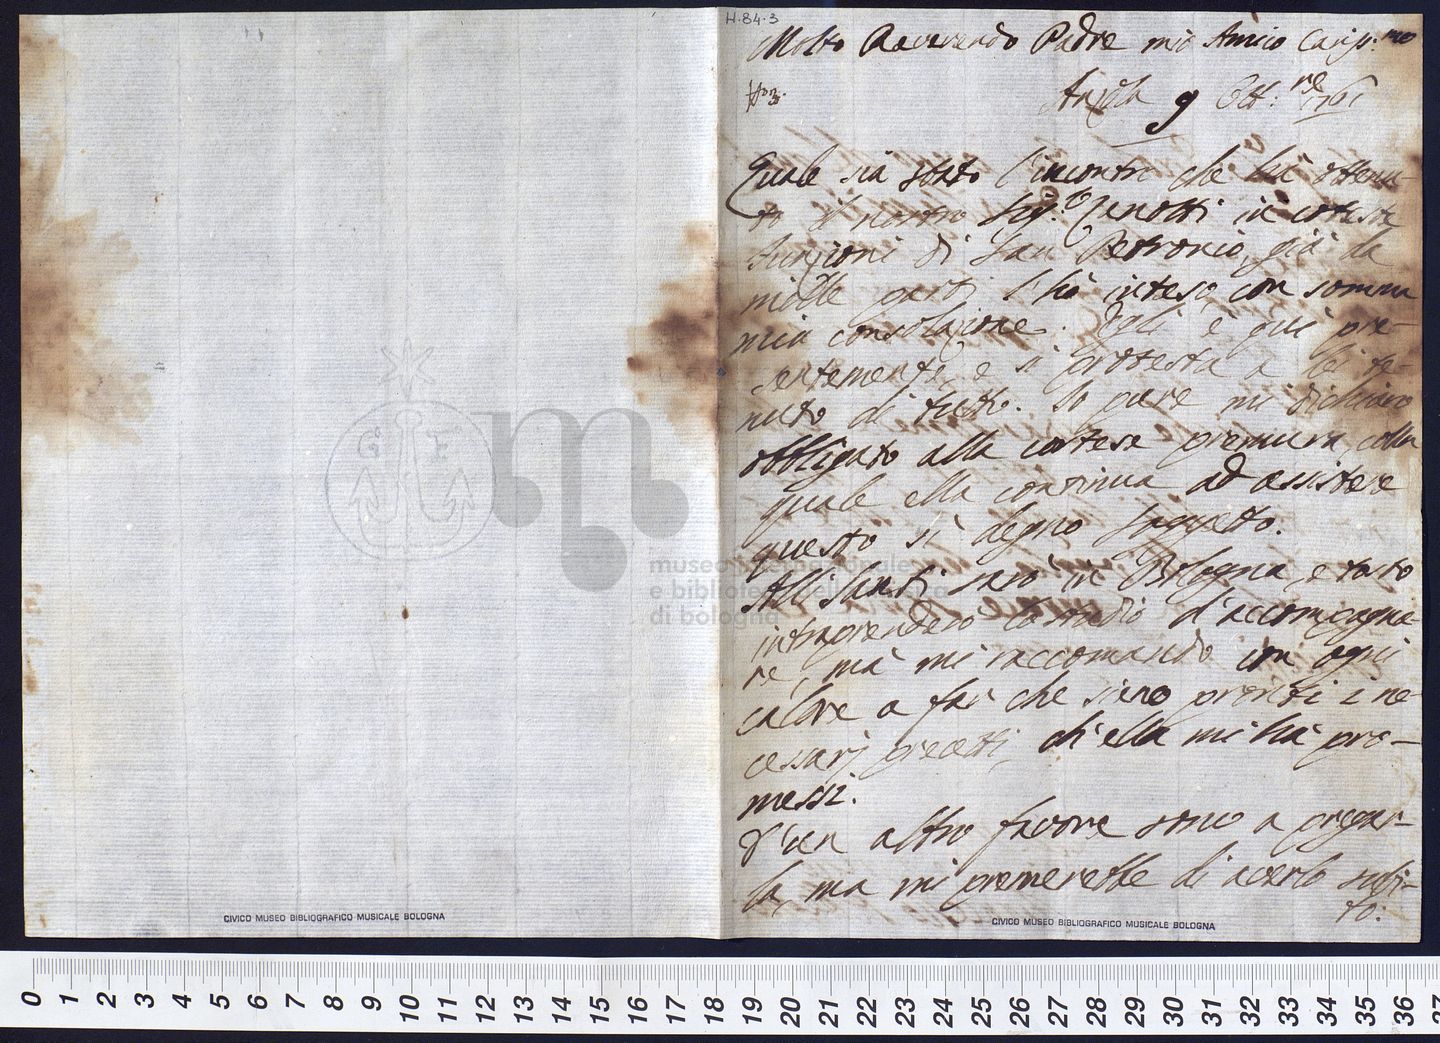 H.84.3
Molto Reverendo Padre mio Amico Cariss:mo
Anzola 9 Ott:re 1761
Quale sia stato l'incontro che hà ottenu-
to il nostro Sig:r Zanotti in coteste
funzioni di San Petronio, già da
mille parti l'hò inteso con somma
mia consolazione. Egli è qui pre-
sentemente, e si protesta a lei te-
nuto di tutto. Io pure mi dichiaro
obbligato alla cortese premura, colla
quale ella continua ad assistere
questo sì degno soggetto.
Alli Santi sarò in Bologna, e tosto
intraprenderò lo studio d'accompagna-
re, mà mi raccomando con ogni
calore a far che sieno pronti i ne-
cessarj precetti, ch'ella mi hà pro-
messi.
D'un altro favore sono a pregar-
la, ma mi premerebbe di averlo subi-
to:
museo internazionale
e biblioteca della musica
di bologna
CIVICO MUSEO BIBLIOGRAFICO MUSICALE BOLOGNA
CIVICO MUSEO BIBLIOGRAFICO MUSICALE BOLOGNA
0 1 2 3 4 5 6 7 8 9 10 11 12 13 14 15 16 17 18 19 20 21 22 23 24 25 26 27 28 29 30 31 32 33 34 35 36 37